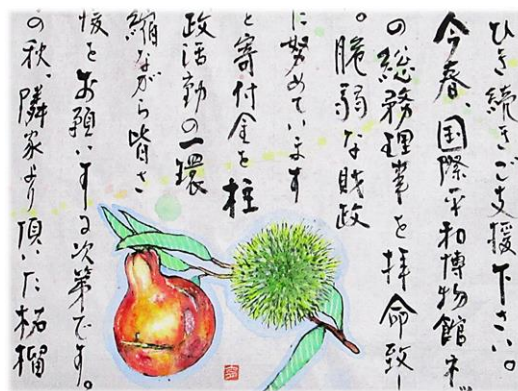 ひき続きご支援下さい。
今春、国際平和博物館ネ
の総務理事を拝命致し
。脆弱な財政
に努めています
と寄付金を柱
政活動の一環
縮ながら皆さ
援をお願いする次第です。
の秋、隣家より頂いた柘榴